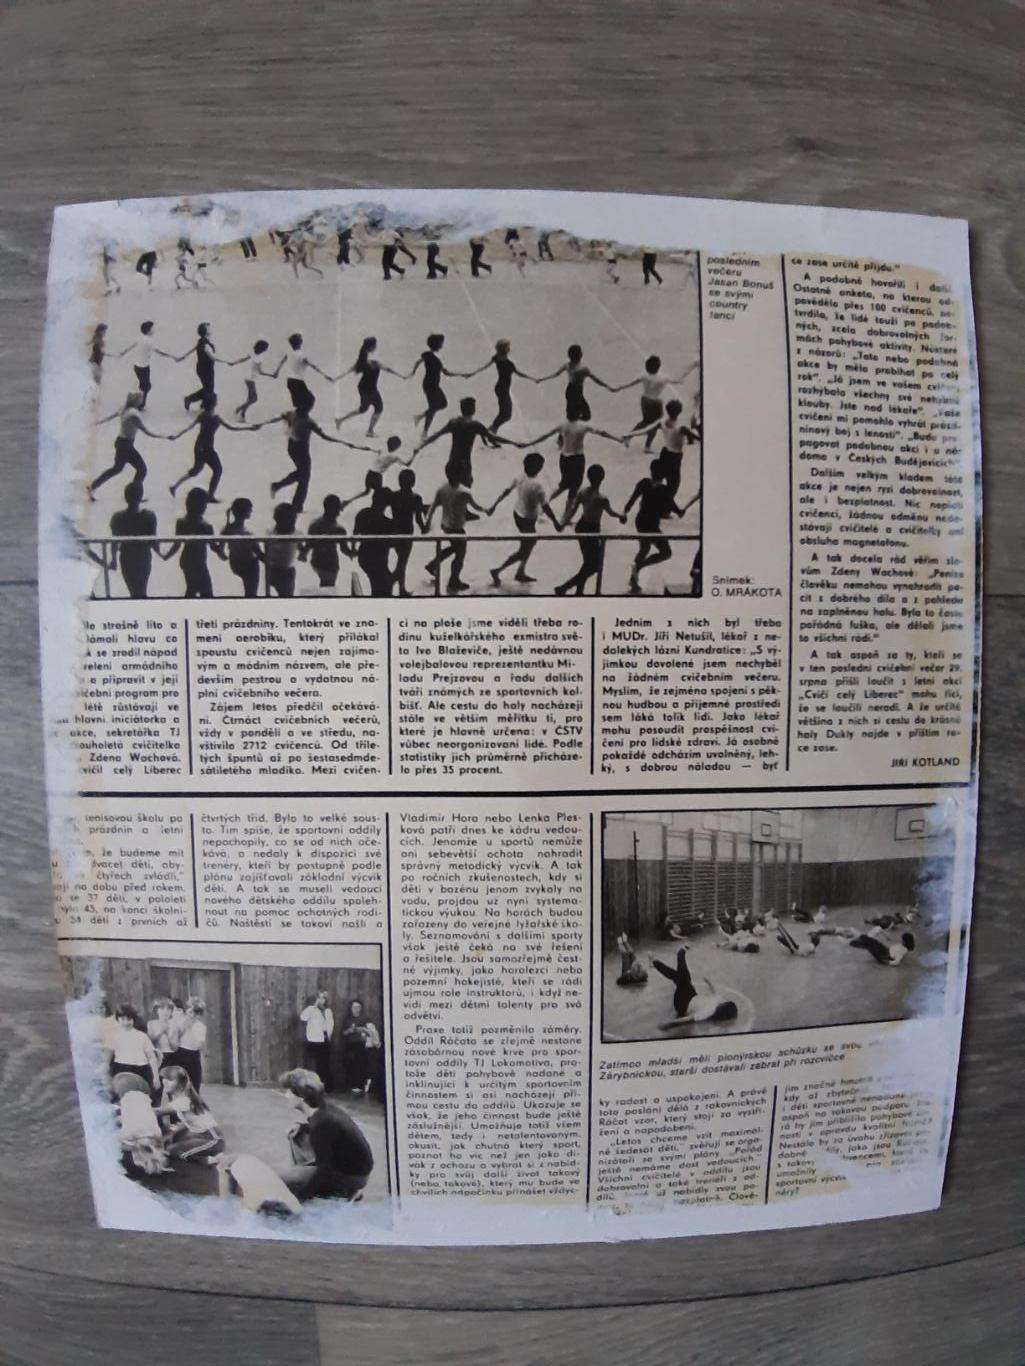 posledním
večeru
Jasan Bonuš
se svými
country
tanci
Snímek:
O. MRÁKOTA
strašně líto a
lámali hlavu co
se zrodil nápad
velení armádního
a připravit v její
cvičební program pro
létě zůstávají ve
hlavní iniciátorka a
akce, sekretářka TJ
dlouholetá cvičitelka
Zdena Wachová.
Cvičil celý Liberec
třetí prázdniny. Tentokrát ve zna-
mení aerobiku, který přilákal
spoustu cvičenců nejen zajíma-
vým a módním názvem, ale pře-
devším pestrou a vydatnou ná-
plní cvičebního večera.
Zájem letos předčil očekává-
ní. Čtrnáct cvičebních večerů,
vždy v pondělí a ve středu, na-
vštívilo 2712 cvičenců. Od tříle-
tých špuntů až po šestasedmde-
sátiletého mladíka. Mezi cvičen-
ci na ploše jsme viděli třeba ro-
dinu kuželkářského exmistra svě-
ta Ivo Blaževiče, ještě nedávnou
volejbalovou reprezentantku Mi-
ladu Prejzovou a řadu dalších
tváří známých ze sportovních kol-
bišť. Ale cestu do haly nacházejí
stále ve větším měřítku ti, pro
které je hlavně určena: v ČSTV
vůbec neorganizovaní lidé. Podle
statistiky jich průměrně přicháze-
lo přes 35 procent.
Jedním z nich byl třeba
i MUDr. Jiří Netušil, lékař z ne-
dalekých lázní Kundratice: „S vý-
jimkou dovolené jsem nechyběl
na žádném cvičebním večeru.
Myslím, že zejména spojení s pěk-
nou hudbou a příjemné prostředí
sem láká tolik lidí. Jako lékař
mohu posoudit prospěšnost cvi-
čení pro lidské zdraví. Já osobně
pokaždé odcházím uvolněný, leh-
ký, s dobrou náladou — byť
ce zase určitě přijdu.“
A podobně hovořili i další.
Ostatně anketa, na kterou od-
povědělo přes 100 cvičenců, po-
tvrdila, že lidé touží po podob-
ných, zcela dobrovolných for-
mách pohybové aktivity. Některé
z názorů: „Tato nebo podobná
akce by měla probíhat po celý
rok“. „Já jsem ve vašem
rozhýbala všechny své nehybné
klouby. Jste nad lékaře“. „Vaše
cvičení mi pomohlo vyhrát prázd-
ninový boj s leností“. „Budu pro-
pagovat podobnou akci i u nás
doma v Českých Budějovicích“
Dalším velkým kladem této
akce je nejen ryzí dobrovolnost,
ale i bezplatnost. Nic neplatí
cvičenci, žádnou odměnu nedo-
stávají cvičitelé a cvičitelky ani
obsluha magnetofonu.
A tak docela rád věřím slo-
vům Zdeny Wachové: „Peníze
člověku nemohou vynahradit po-
cit z dobrého díla a z pohledu
na zaplněnou halu. Byla to často
pořádná fuška, ale dělali jsme
to všichni rádi.“
A tak aspoň za ty, kteří se
v ten poslední cvičební večer 29.
srpna přišli loučit s letní akcí
„Cvičí celý Liberec“ mohu říci,
že se loučili neradi. A že určitě
většina z nich si cestu do krásné
haly Dukly najde v příštím ro-
ce zase.
JIŘÍ KOTLAND
tenisovou školu po
prázdnin a letní
že budeme mít
dvacet dětí, aby-
čtyřech zvládli,“
na dobu před rokem.
se 37 dětí, v pololetí
45, na konci školní-
54 dětí z prvních až
čtvrtých tříd. Bylo to velké sous-
to. Tím spíše, že sportovní oddíly
nepochopily, co se od nich oče-
kává, a nedaly k dispozici své
trenéry, kteří by postupně podle
plánu zajišťovali základní výcvik
dětí. A tak se museli vedoucí
nového dětského oddílu spoleh-
nout na pomoc ochotných rodi-
čů. Naštěstí se takoví našli a
Vladimír Hora nebo Lenka Ples-
ková patří dnes ke kádru vedou-
cích. Jenomže u sportů nemůže
ani sebevětší ochota nahradit
správný metodický výcvik. A tak
po ročních zkušenostech, kdy si
děti v bazénu jenom zvykaly na
vodu, projdou už nyní systema-
tickou výukou. Na horách budou
zařazeny do veřejné lyžařské ško-
ly. Seznamování s dalšími sporty
však ještě čeká na své řešení
a řešitele. Jsou samozřejmě čest-
né výjimky, jako horolezci nebo
pozemní hokejisté, kteří se rádi
ujmou role instruktorů, i když ne-
vidí mezi dětmi talenty pro svá
odvětví.
Praxe totiž pozměnila záměry.
Oddíl Ráčata se zřejmě nestane
zásobárnou nové krve pro spor-
tovní oddíly TJ Lokomotiva, pro-
tože děti pohybově nadané a
inklinující k určitým sportovním
činnostem si asi nacházejí pří-
mou cestu do oddílů. Ukazuje se
však, že jeho činnost bude ještě
záslužnější. Umožňuje totiž všem
dětem, tedy i netalentovaným,
okusit, jak chutná který sport,
poznat ho víc než jen jako di-
vák z ochozu a vybrat si z nabíd-
ky pro svůj další život takový
(nebo takové), který mu bude ve
chvílích odpočinku přinášet vždyc-
Zatímco mladší měli pionýrskou schůzku se svou
Zárybnickou, starší dostávali zabrat při rozcvičce
ky radost a uspokojení. A právě
toto poslání dělá z rakovnických
Ráčat vzor, který stojí za vystí-
žení a napodobení.
„Letos chceme vzít maximál-
ně šedesát dětí,“ svěřují se orga-
nizátoři se svými plány
ještě nemáme dost vedoucích.“
Všichni cvičitelé v oddílu jsou
dobrovolní a také trenéři z od-
dílů, už nabídly svou po-
bezplatně. Člově-
jim značně
kdy až
i děti sportovně nenadané
aspoň na takovou podporu,
rá by jim přiblížila pohybové
nosti v opravdu kvalitní
Nestálo by za úvahu zřízení
dobně jako jsou
s takov
umožnily
sportovní výcvik
néry?